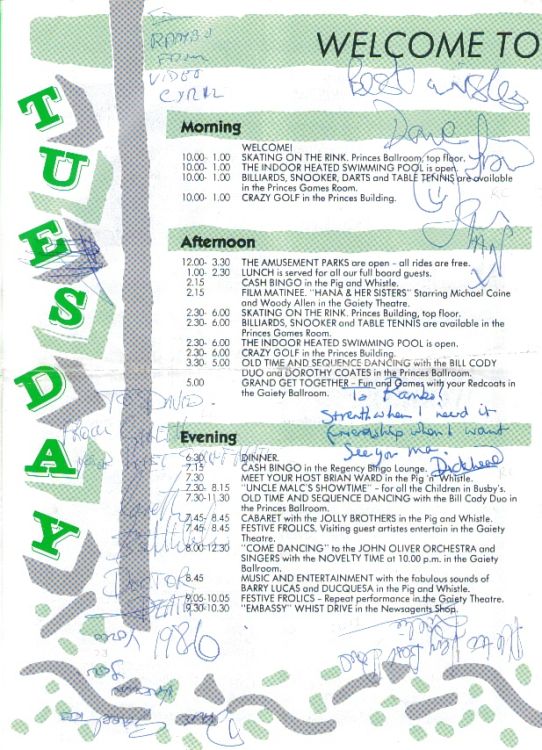 WELCOME TO
TUESDAY
TO
RAMBO
FROM
VIDEO
CYRIL
Best wishes
Dave
Morning
WELCOME!
10.00- 1.00 SKATING ON THE RINK. Princes Ballroom, top floor.
10.00- 1.00 THE INDOOR HEATED SWIMMING POOL is open.
10.00- 1.00 BILLIARDS, SNOOKER, DARTS and TABLE TENNIS are available
in the Princes Games Room.
10.00- 1.00 CRAZY GOLF in the Princes Building.
Afternoon
12.00- 3.30 THE AMUSEMENT PARKS are open – all rides are free.
1.00- 2.30 LUNCH is served for all our full board guests.
2.15 CASH BINGO in the Pig and Whistle.
2.15 FILM MATINEE. "HANA & HER SISTERS" Starring Michael Caine
and Woody Allen in the Gaiety Theatre.
2.30- 6.00 SKATING ON THE RINK. Princes Building, top floor.
2.30- 6.00 BILLIARDS, SNOOKER and TABLE TENNIS are available in the
Princes Games Room.
2.30- 6.00 THE INDOOR HEATED SWIMMING POOL is open.
2.30- 6.00 CRAZY GOLF in the Princes Building.
3.30- 5.00 OLD TIME AND SEQUENCE DANCING with the BILL CODY
DUO and DOROTHY COATES in the Princes Ballroom.
5.00 GRAND GET TOGETHER – Fun and Games with your Redcoats in
the Gaiety Ballroom.
To Rambo!
Strength when I need it
friendship when I want
See you ma.
Dickhead
TO DAVID
FROM
Evening
6.30 DINNER.
7.15 CASH BINGO in the Regency Bingo Lounge.
7.30 MEET YOUR HOST BRIAN WARD in the Pig 'n' Whistle.
7.30- 8.15 "UNCLE MALC'S SHOWTIME" – for all the Children in Busby's.
7.30-11.30 OLD TIME AND SEQUENCE DANCING with the Bill Cody Duo in
the Princes Ballroom.
7.45- 8.45 CABARET with the JOLLY BROTHERS in the Pig and Whistle.
7.45- 8.45 FESTIVE FROLICS. Visiting guest artistes entertain in the Gaiety
Theatre.
8.00-12.30 "COME DANCING" to the JOHN OLIVER ORCHESTRA and
SINGERS with the NOVELTY TIME at 10.00 p.m. in the Gaiety
Ballroom.
8.45 MUSIC AND ENTERTAINMENT with the fabulous sounds of
BARRY LUCAS and DUCQUESA in the Pig and Whistle.
9.05-10.05 FESTIVE FROLICS – Repeat performance in the Gaiety Theatre.
9.30-10.30 "EMBASSY" WHIST DRIVE in the Newsagents Shop.
1986